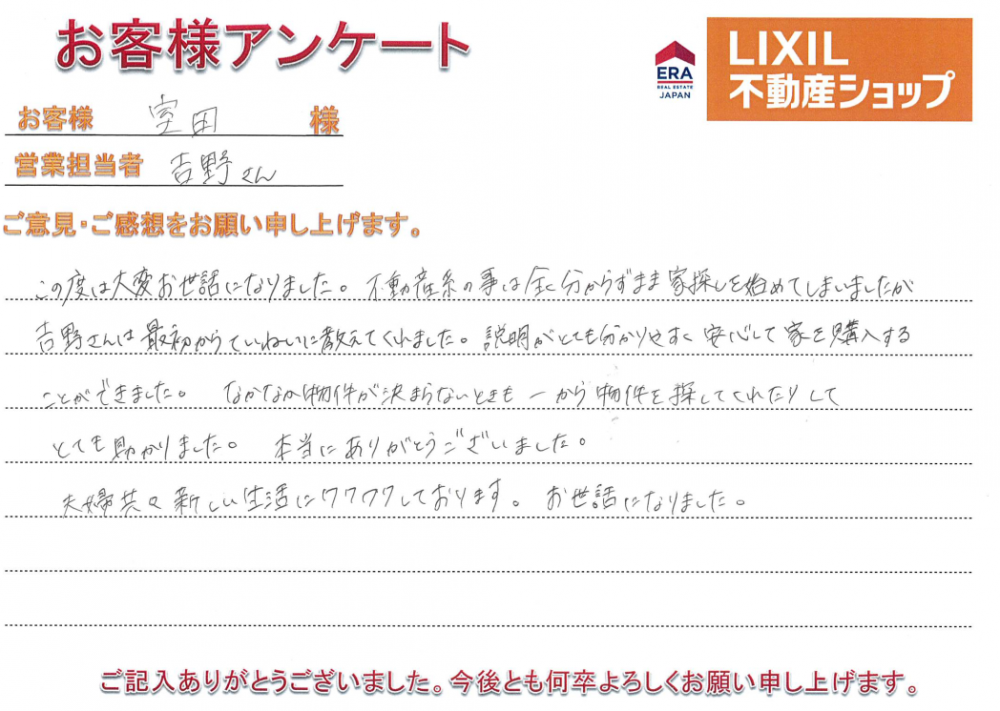 お客様アンケート
ERA
REAL ESTATE
JAPAN
LIXIL
不動産ショップ
お客様 室田 様
営業担当者 吉野さん
ご意見・ご感想をお願い申し上げます。
この度は大変お世話になりました。不動産系の事は全く分からずまま家探しを始めてしまいましたが
吉野さんは最初からていねいに教えてくれました。説明がとても分かりやすく安心して家を購入する
ことができました。 なかなか物件が決まらないときも一から物件を探してくれたりして
とても助かりました。 本当にありがとうございました。
夫婦共々新しい生活にワクワクしております。 お世話になりました。
ご記入ありがとうございました。今後とも何卒よろしくお願い申し上げます。